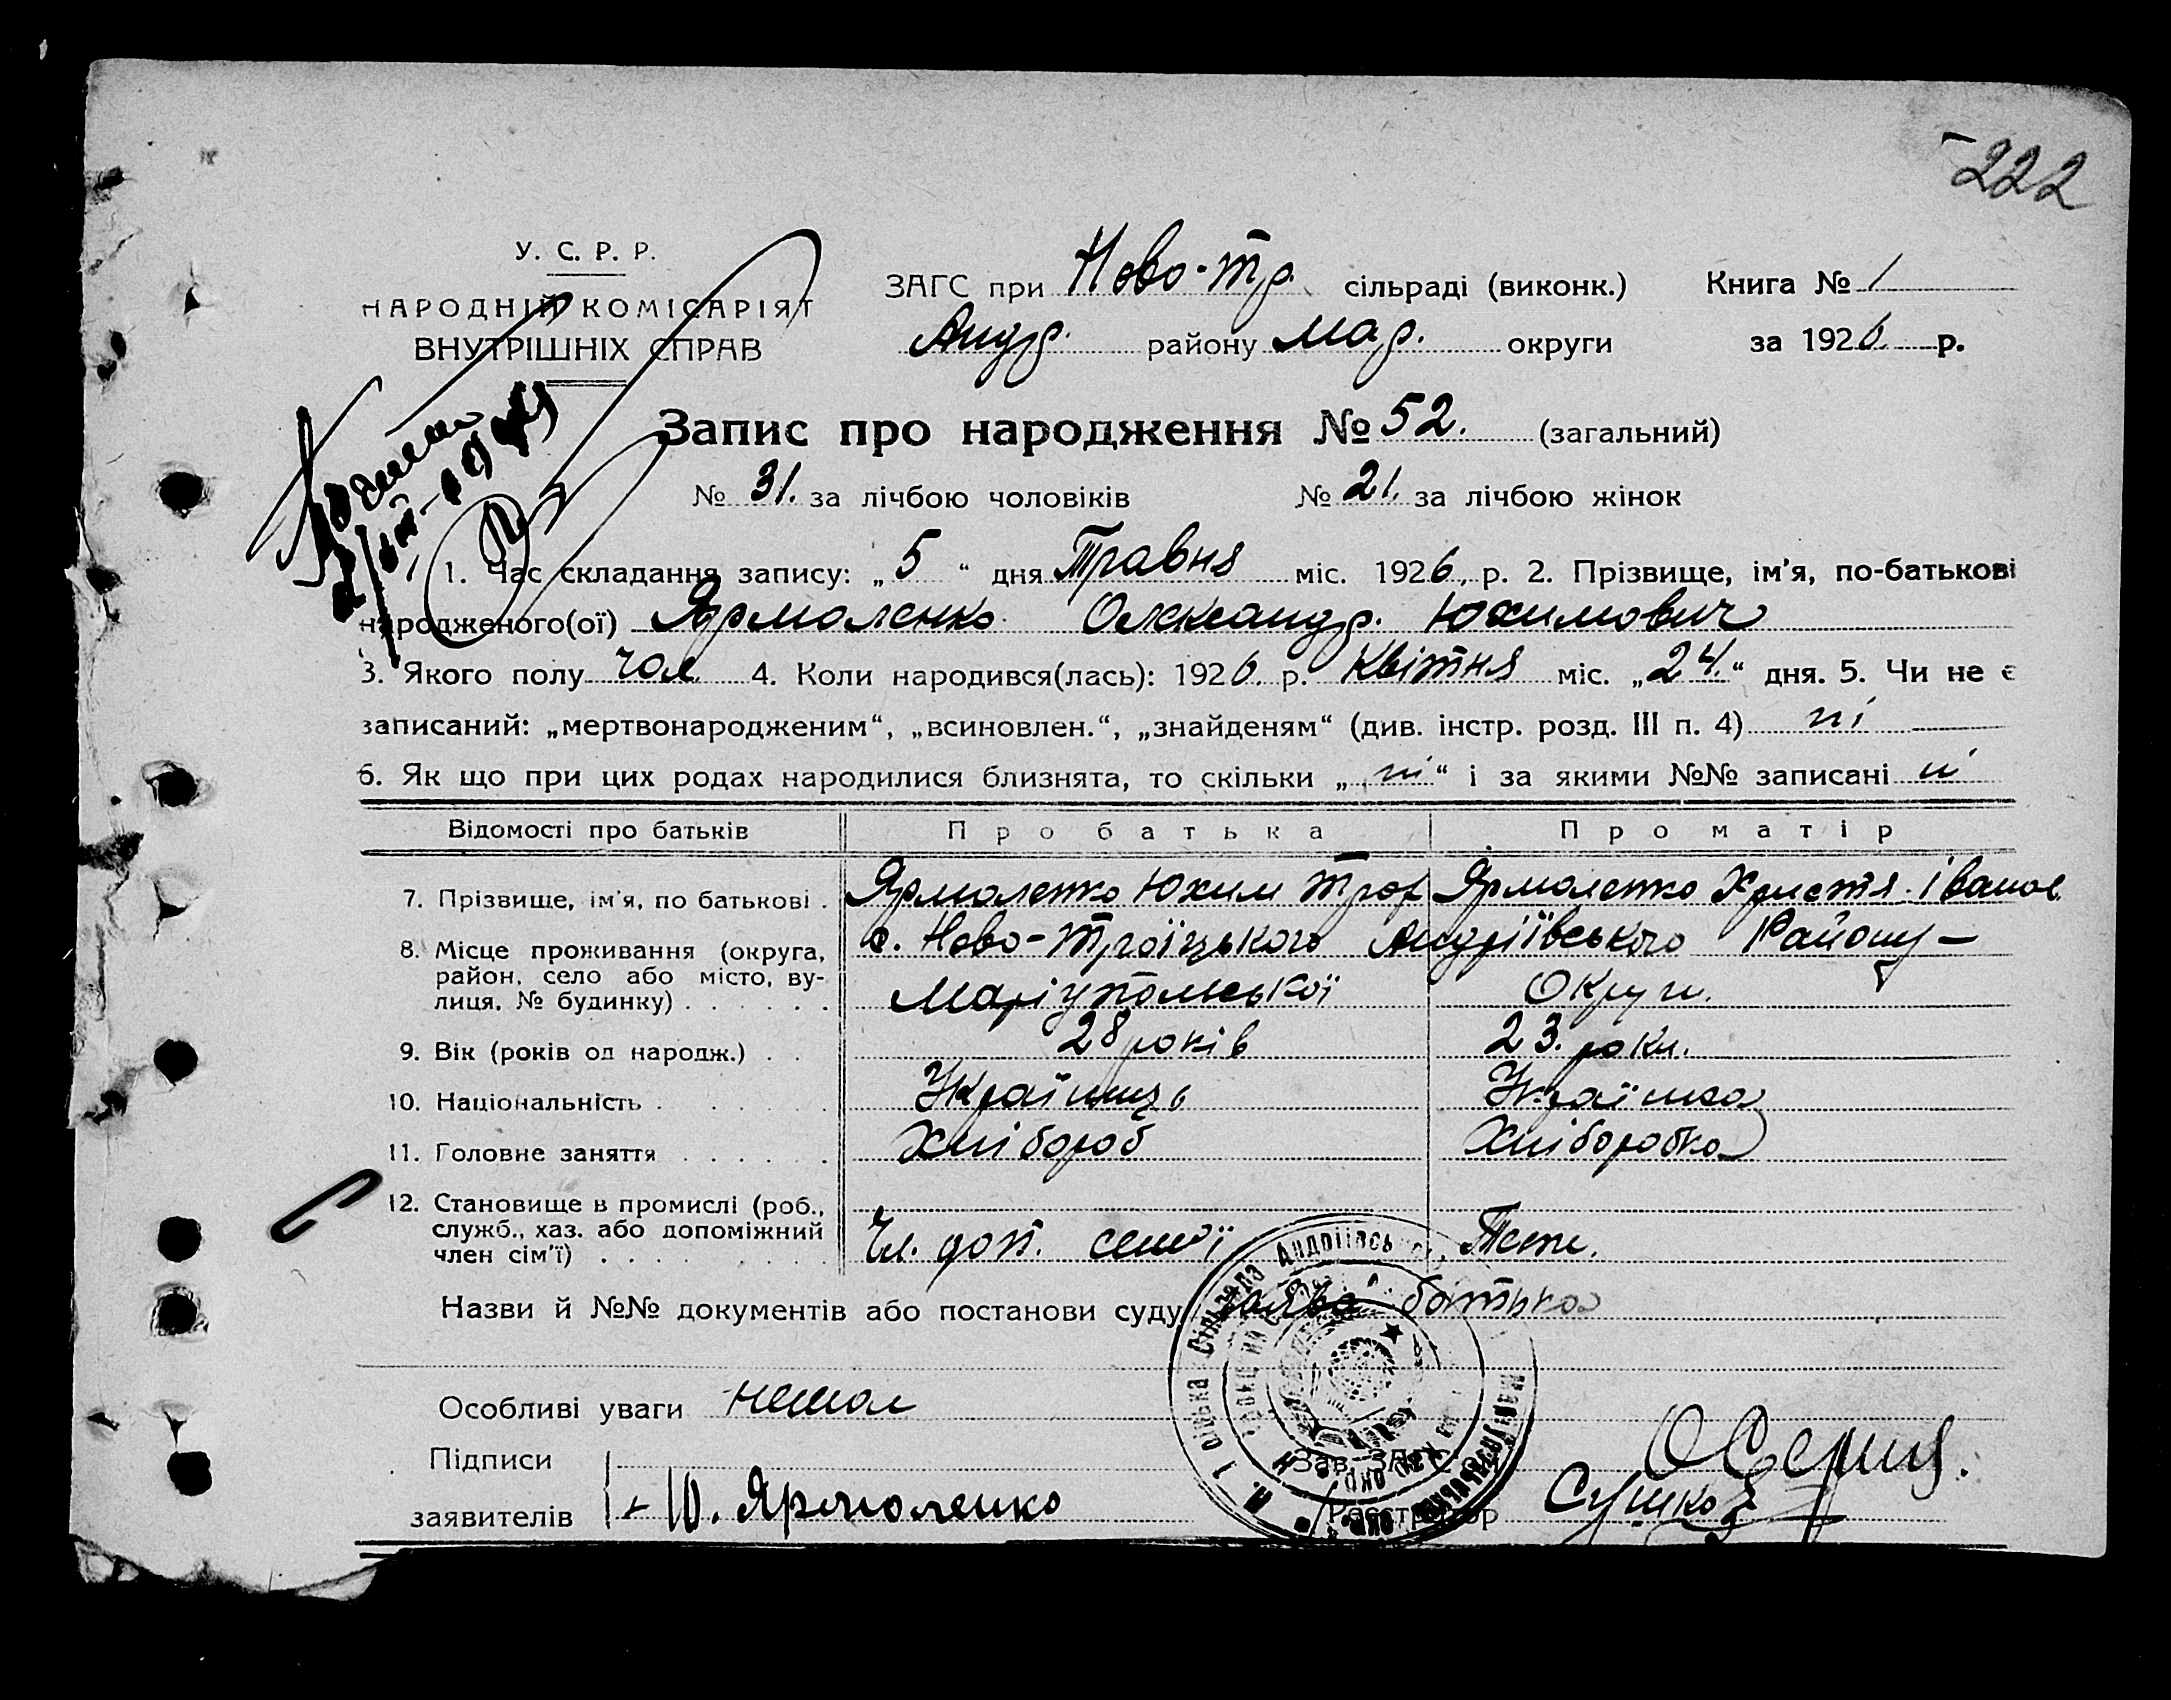 222
У. С. Р. Р.
НАРОДНІЙ КОМІСАРІЯТ
ВНУТРІШНІХ СПРАВ
ЗАГС при Ново-Тр. сільраді (виконк.) Книга № 1
Андр. району Мар. округи за 1926 р.
Запис про народження № 52. (загальний)
№ 31. за лічбою чоловіків № 21. за лічбою жінок
1. Час складання запису: „5“ дня Травня міс. 1926, р. 2. Прізвище, ім'я, по-батькові
народженого(ої) Ярмоленко Олександр. Юхимович
3. Якого полу чол 4. Коли народився(лась): 1926. р. Квітня міс. „24.“ дня. 5. Чи не є
записаний: „мертвонародженим“, „всиновлен.“, „знайденям“ (див. інстр. розд. III п. 4) ні
6. Як що при цих родах народилися близнята, то скільки „ні“ і за якими №№ записані
Відомості про батьків Про батька Про матір
7. Прізвище, ім'я, по батькові . Ярмоленко Юхим Троф Ярмоленко Христя Іванов.
8. Місце проживання (округа, с. Ново-Троїцького Андріївського Району
район, село або місто, ву-
лиця, № будинку) . . . . . . Маріупольської Округи.
9. Вік (років од народж.) . . 28 років 23. роки.
10. Національність . . . . . Українець Українка
11. Головне заняття . . . . . Хлібороб Хліборобка
12. Становище в промислі (роб.,
служб., хаз. або допоміжний
член сім'ї) . . . . . . . . Чл. доп. семї Теж.
Назви й №№ документів або постанови суду заява батька
Особливі уваги немає
Підписи Зав. ЗАГС'ом
заявителів Ю. Ярмоленко Реєстратор Сушко